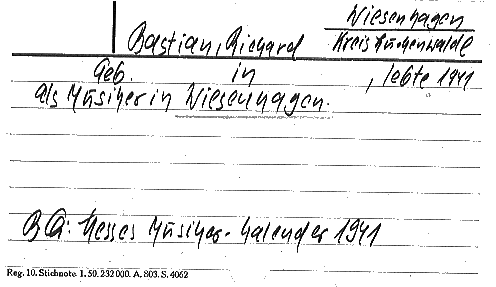 Wiesenhagen
Bastian, Richard Kreis Luckenwalde
Geb. in , lebte 1941
als Musiker in Wiesenhagen.
BQ: Hesses Musiker-Kalender 1941
Reg. 10. Stichnote 1. 50. 232000. A. 803. S. 4062